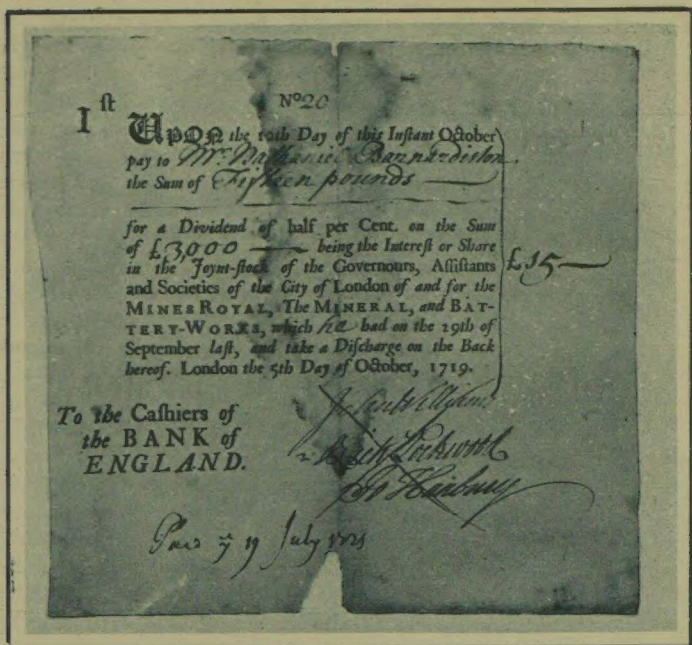 Nº 20
1ſt
UPON the 10th Day of this Inſtant October
pay to Mr. Nathaniel Barnardiston.
the Sum of Fifteen pounds
for a Dividend of half per Cent. on the Sum
of £3,000 being the Intereſt or Share
in the Joynt-ſtock of the Governours, Aſſiſtants
and Societies of the City of London of and for the
MINES ROYAL, The MINERAL, and BAT-
TERY-WORKS, which he had on the 29th of
September laſt, and take a Diſcharge on the Back
hereof. London the 5th Day of October, 1719.
£15
To the Caſhiers of
the BANK of
ENGLAND.
Lockwood
Hanbury
19 July